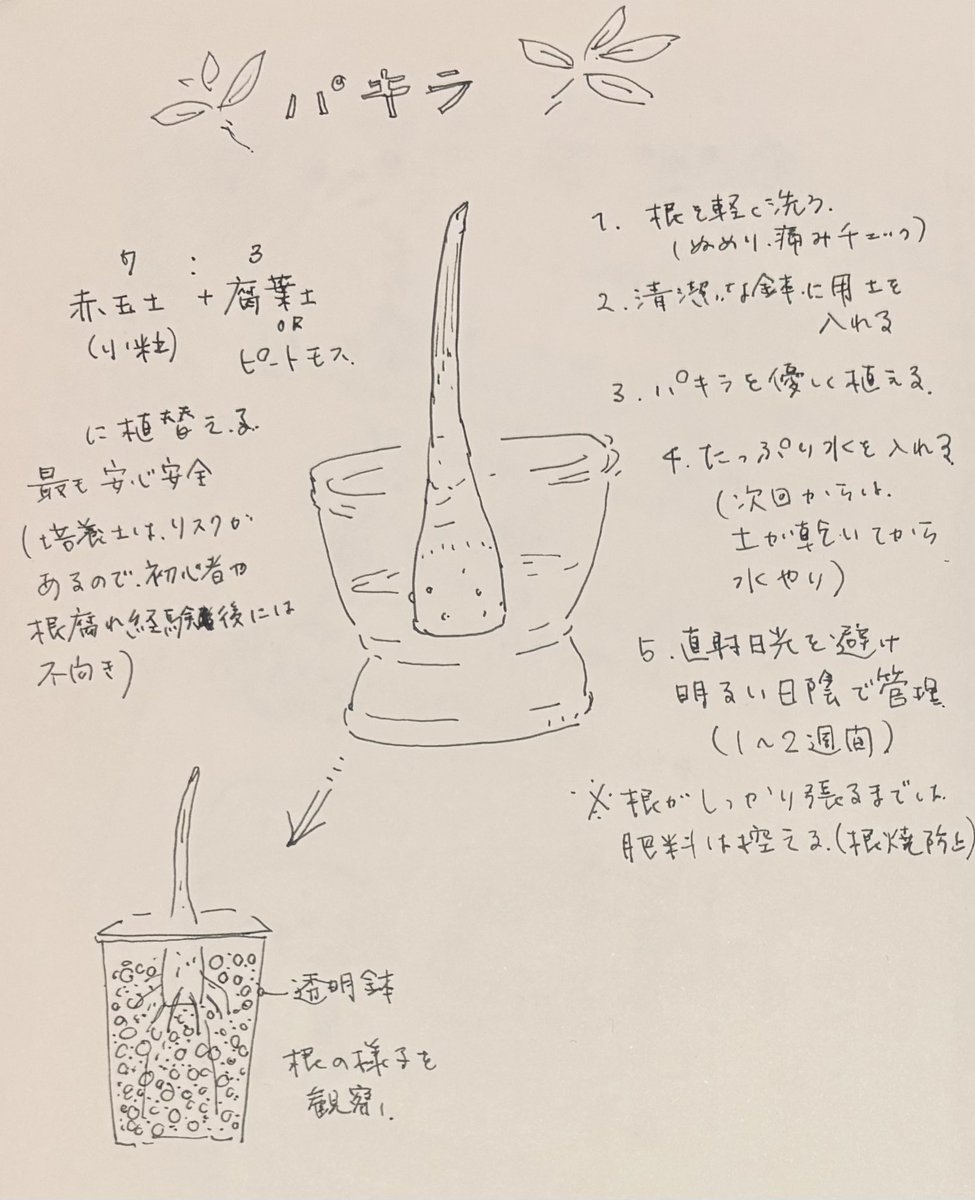 パキラ
7 : 3
赤玉土 + 腐葉土
(小粒)
OR
ピートモス
に植替える。
最も安心安全
(培養土は、リスクが
あるので、初心者や
根腐れ経験後には
不向き)
1. 根を軽く洗う.
(ぬめり、痛みチェック)
2. 清潔な鉢に用土を
入れる
3. パキラを優しく植える.
4. たっぷり水を入れる
(次回からは、
土が乾いてから
水やり)
5. 直射日光を避け
明るい日陰で管理
(1〜2週間)
※根がしっかり張るまでは、
肥料は控える.(根焼防止)
透明鉢
根の様子を
観察!